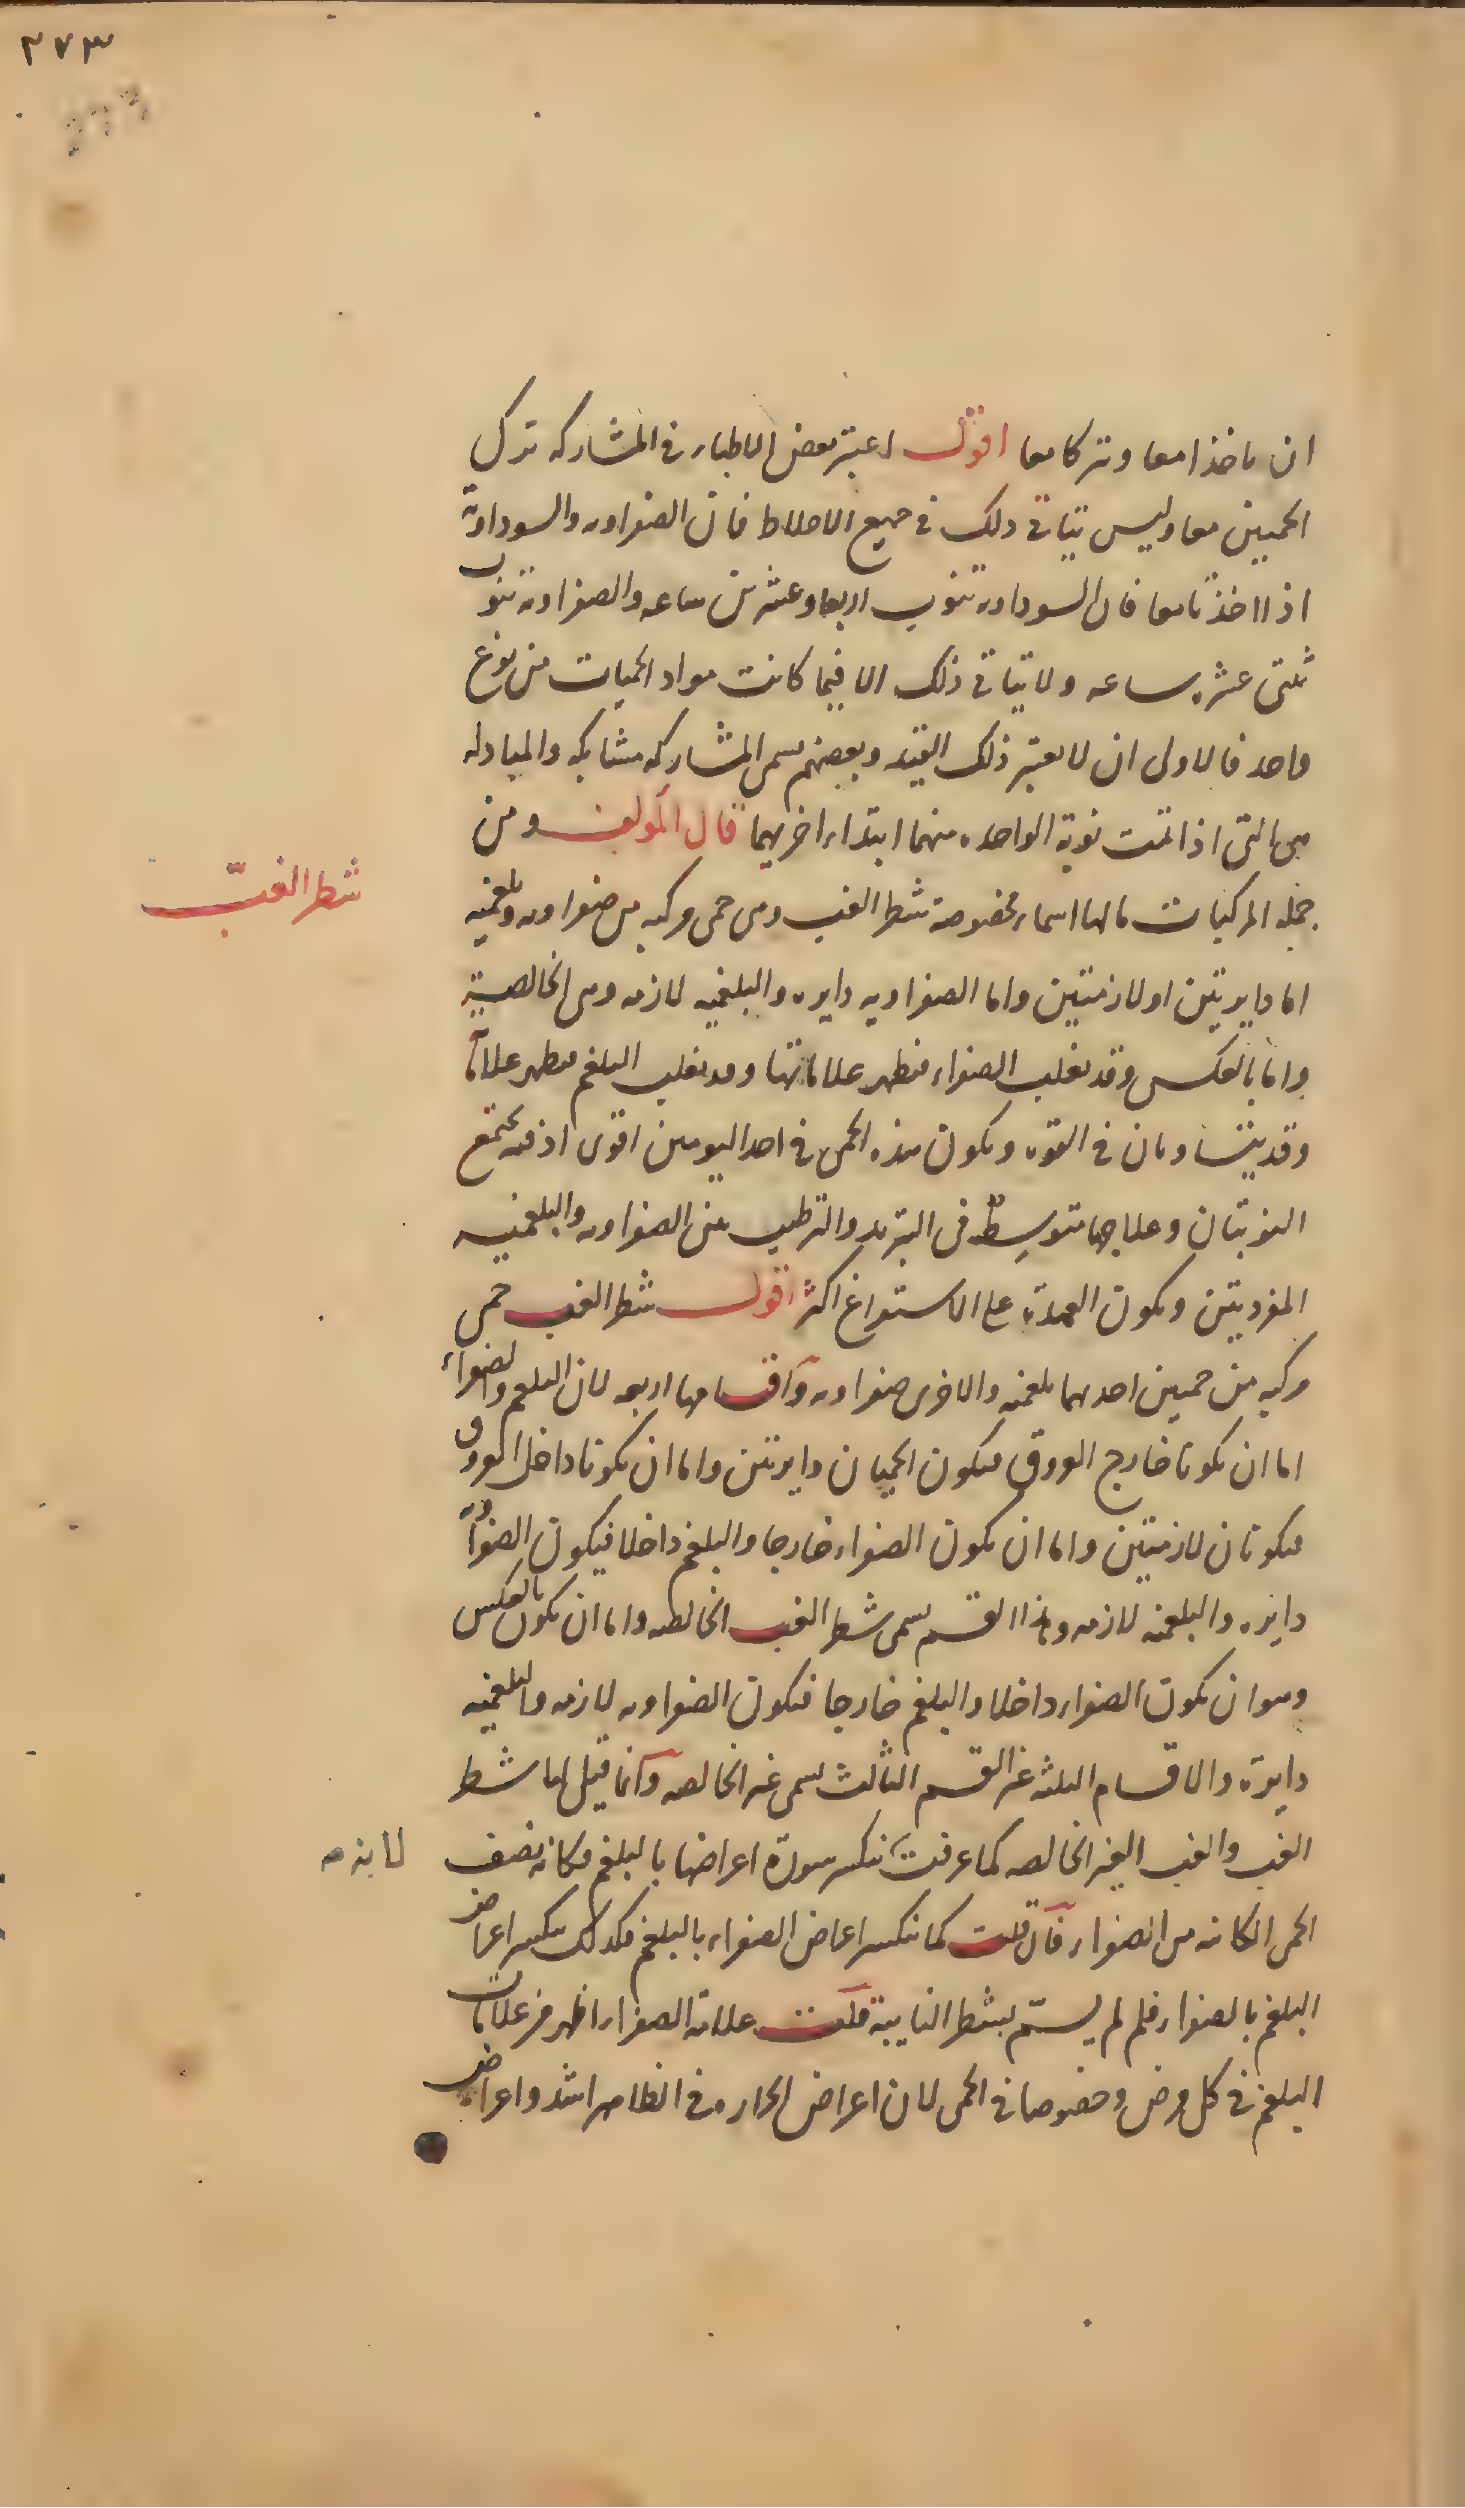 ٢٧٣
ان ياخذا معا ويتركا معا اقول اعتبر بعض الاطباء في المشاركه ترك
الحميين معا وليس يتاتى ذلك في جميع الاخلاط فان الصفراويه والسوداوية
اذا اخذتا معا فان السوداويه تنوب اربعا وعشرين ساعه والصفراويه تنوب
ثنتى عشره ساعه ولا يتاتى ذلك الا فيما كانت مواد الحميات من نوع
واحد فالاولى ان لا يعتبر ذلك القيد وبعضهم يسمى المشاركه مشابكه والمبادله
هى التى اذا تمت نوبة الواحده منهما ابتداء اخريهما قال المولف ومن
جمله المركبات ما لها اسماء مخصوصة شطر الغب وهى حمى مركبه من صفراويه وبلغميه
شطر الغبّ
اما دايرتين او لازمتين واما الصفراويه دايره والبلغميه لازمه وهى الخالصة
واما بالعكس وقد تغلب الصفراء فتظهر علاماتها وقد يغلب البلغم فيظهر علاماته
وقد يتساويان في القوه ويكون هذه الحمى في احد اليومين اقوى اذ فيه يجتمع
النوبتان وعلاجها متوسط فى التبريد والترطيب بين الصفراويه والبلغميه
المفردتين ويكون العمدة على الاستفراغ اكثر اقول شطر الغب حمى
مركبه من حميين احدهما بلغميه والاخرى صفراويه واقسامها اربعه لان البلغم والصفراء
اما ان يكونا خارج العروق فيكون الحميان دايرتين واما ان يكونا داخل العروق
فيكونان لازمتين واما ان يكون الصفراء خارجا والبلغم داخلا فيكون الصفراوية
دايره والبلغميه لازمه وهذا القسم يسمى شطر الغب الخالصه واما ان يكون بالعكس
وهو ان يكون الصفراء داخلا والبلغم خارجا فيكون الصفراويه لازمه والبلغميه
دايرة والاقسام الثلثه غير القسم الثالث يسمى غير الخالصه وانما قيل لها شطر
الغب والغب الغير الخالصه كما عرفت ينكسر سورة اعراضها بالبلغم فكانه نصف
الحمى الكائنه من الصفراء فان قلت كما ينكسر اعراض الصفراء بالبلغم فكذلك ينكسر اعراض
البلغم بالصفراء فلم لم يسمّ بشطر النايبة قلت علامة الصفراء اظهر من علامات
البلغم في كل مرض وخصوصا في الحمى لان اعراض الحراره في الظاهر اشد واعراض